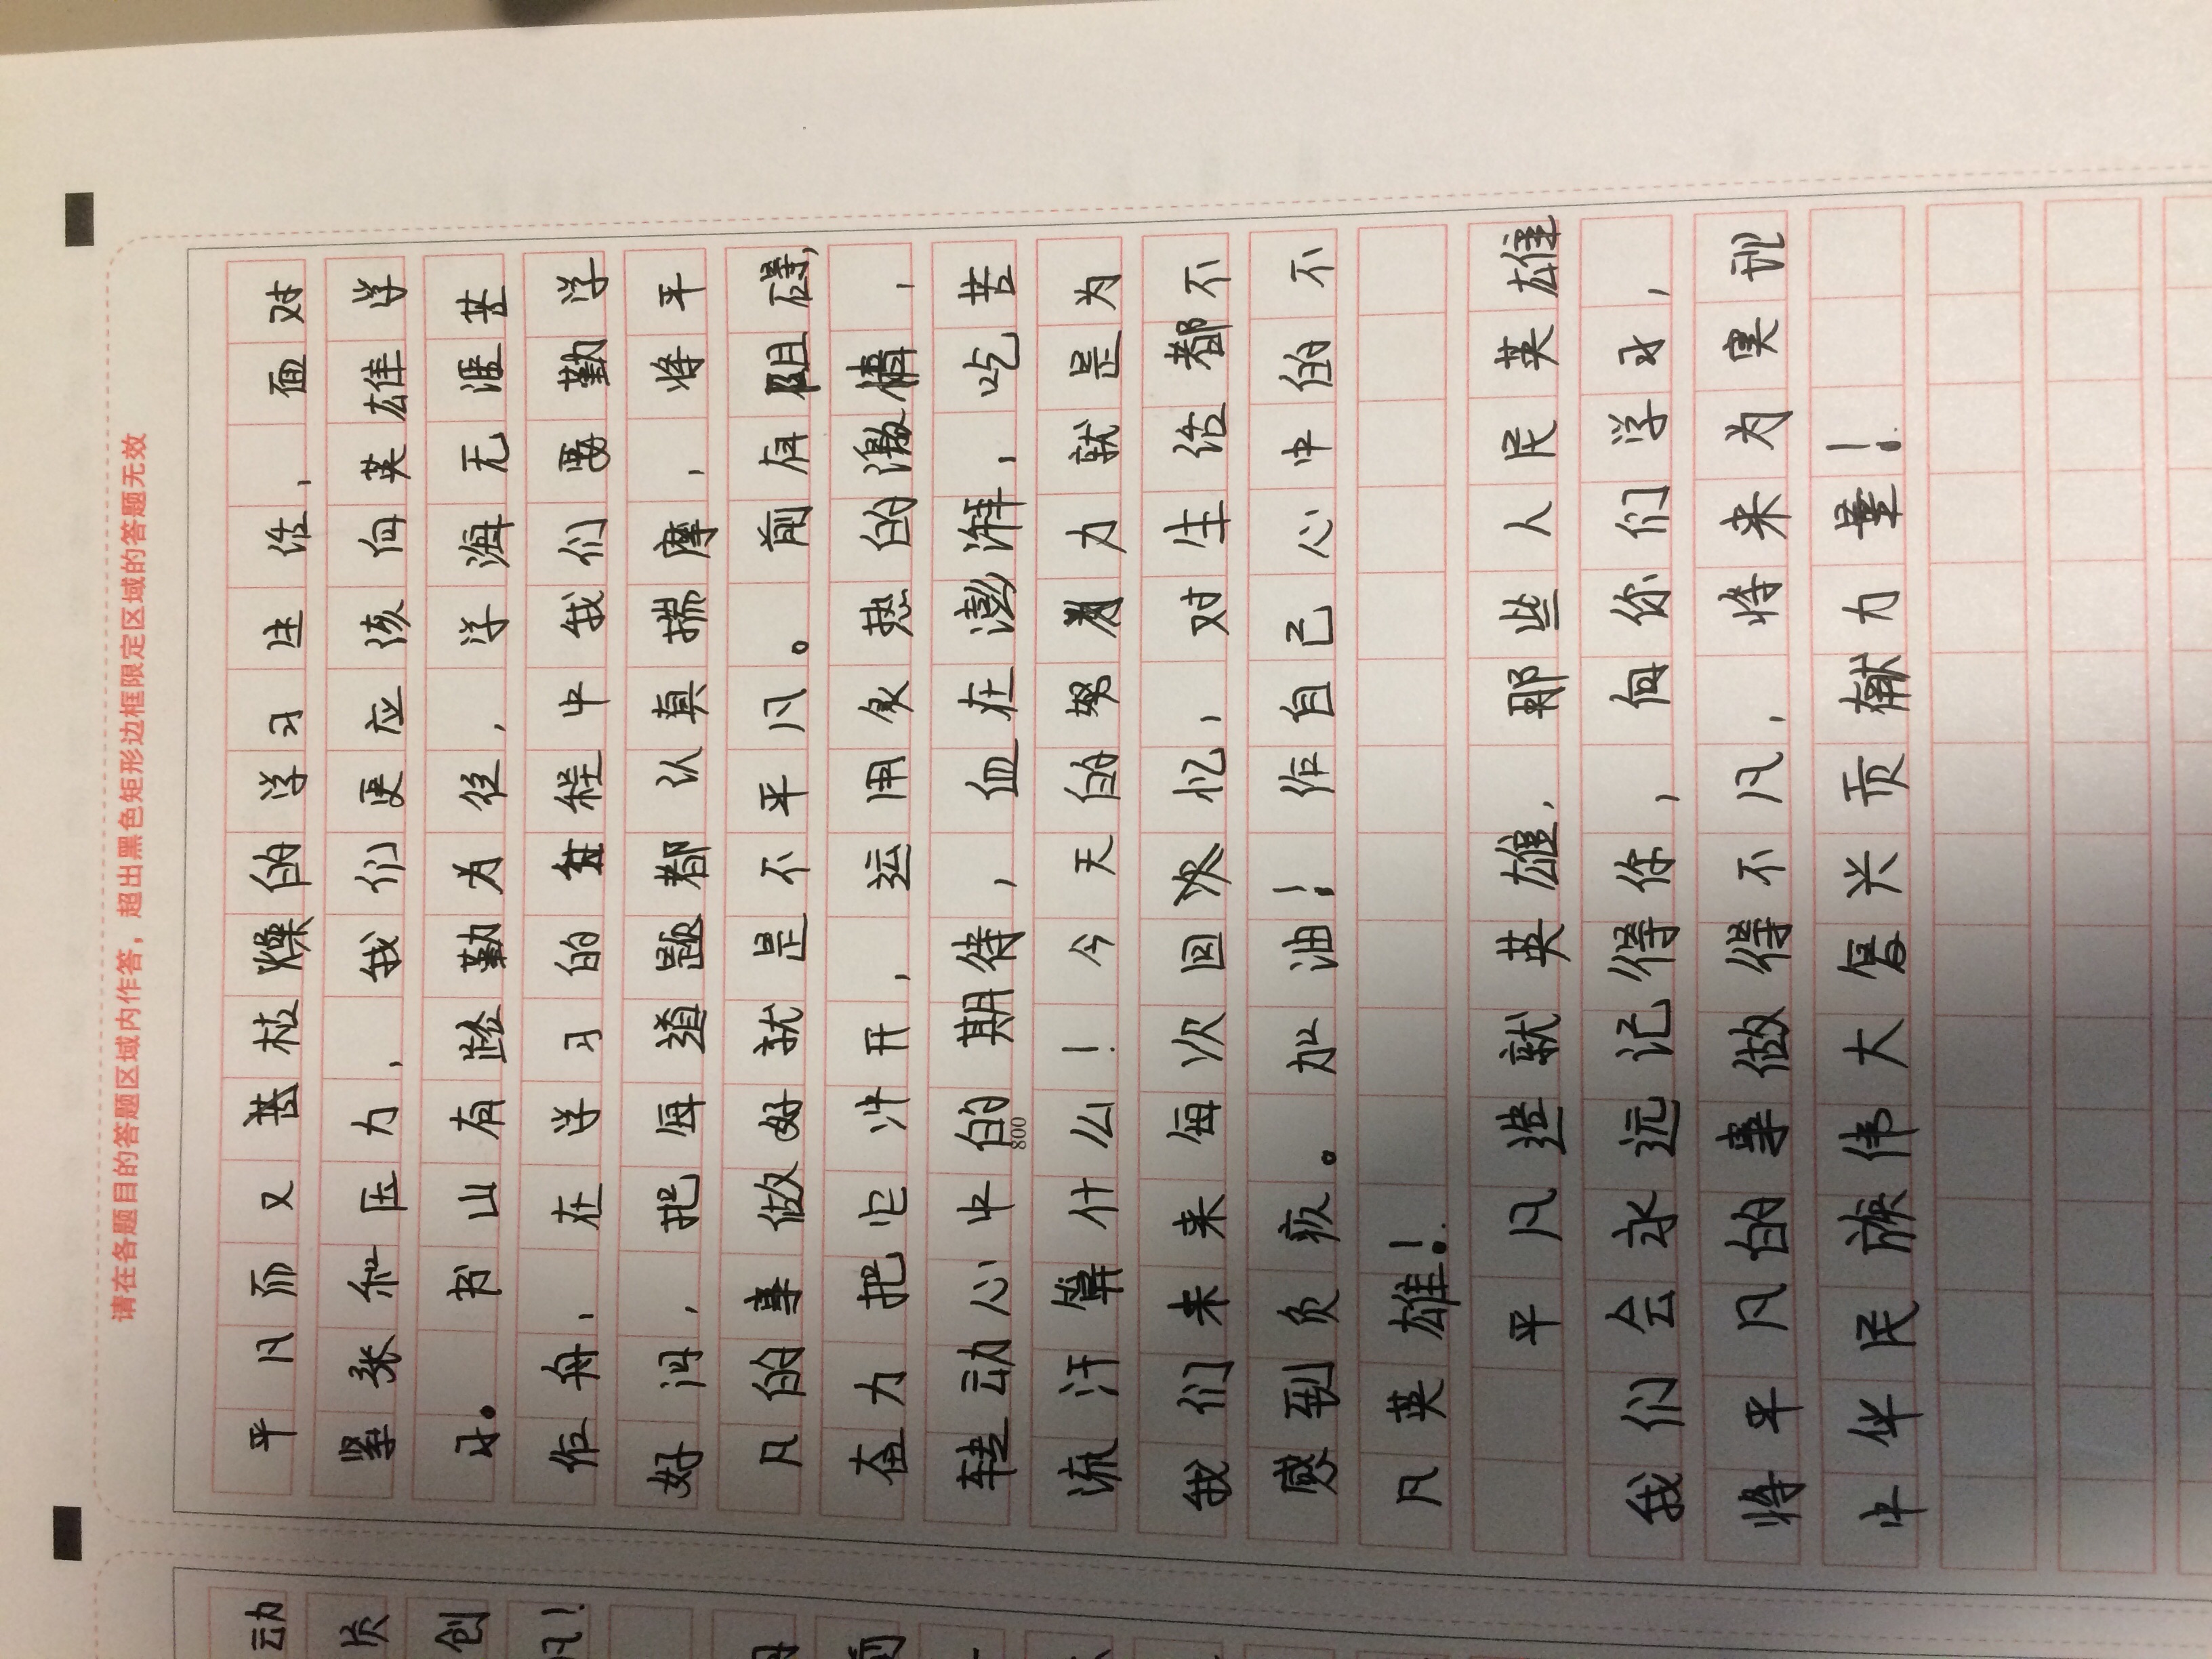 请在各题目的答题区域内作答，超出黑色矩形边框限定区域的答题无效
平凡而又甚枯燥的学习生活，面对
紧张和压力，我们更应该向英雄学
习。书山有路勤为径，学海无涯苦
作舟，在学习的程中我们要勤学
好问，把每道题都认真揣摩，将平
凡的事做好就是不平凡。前有阻碍，
奋力把它冲开，运用炙热的激情，
转动心中的期待，血在澎湃，吃苦
800
流汗算什么！今天的努力就是为
我们来来每次回忆，对生活都不
感到负疚。加油！作自己心中的不
凡英雄！
平凡造就英雄，那些人民英雄
我们会永远记得你，向你们学习，
将平凡的事做得不凡，将来为实现
中华民族伟大复兴贡献力量！
动
质
创
凡！